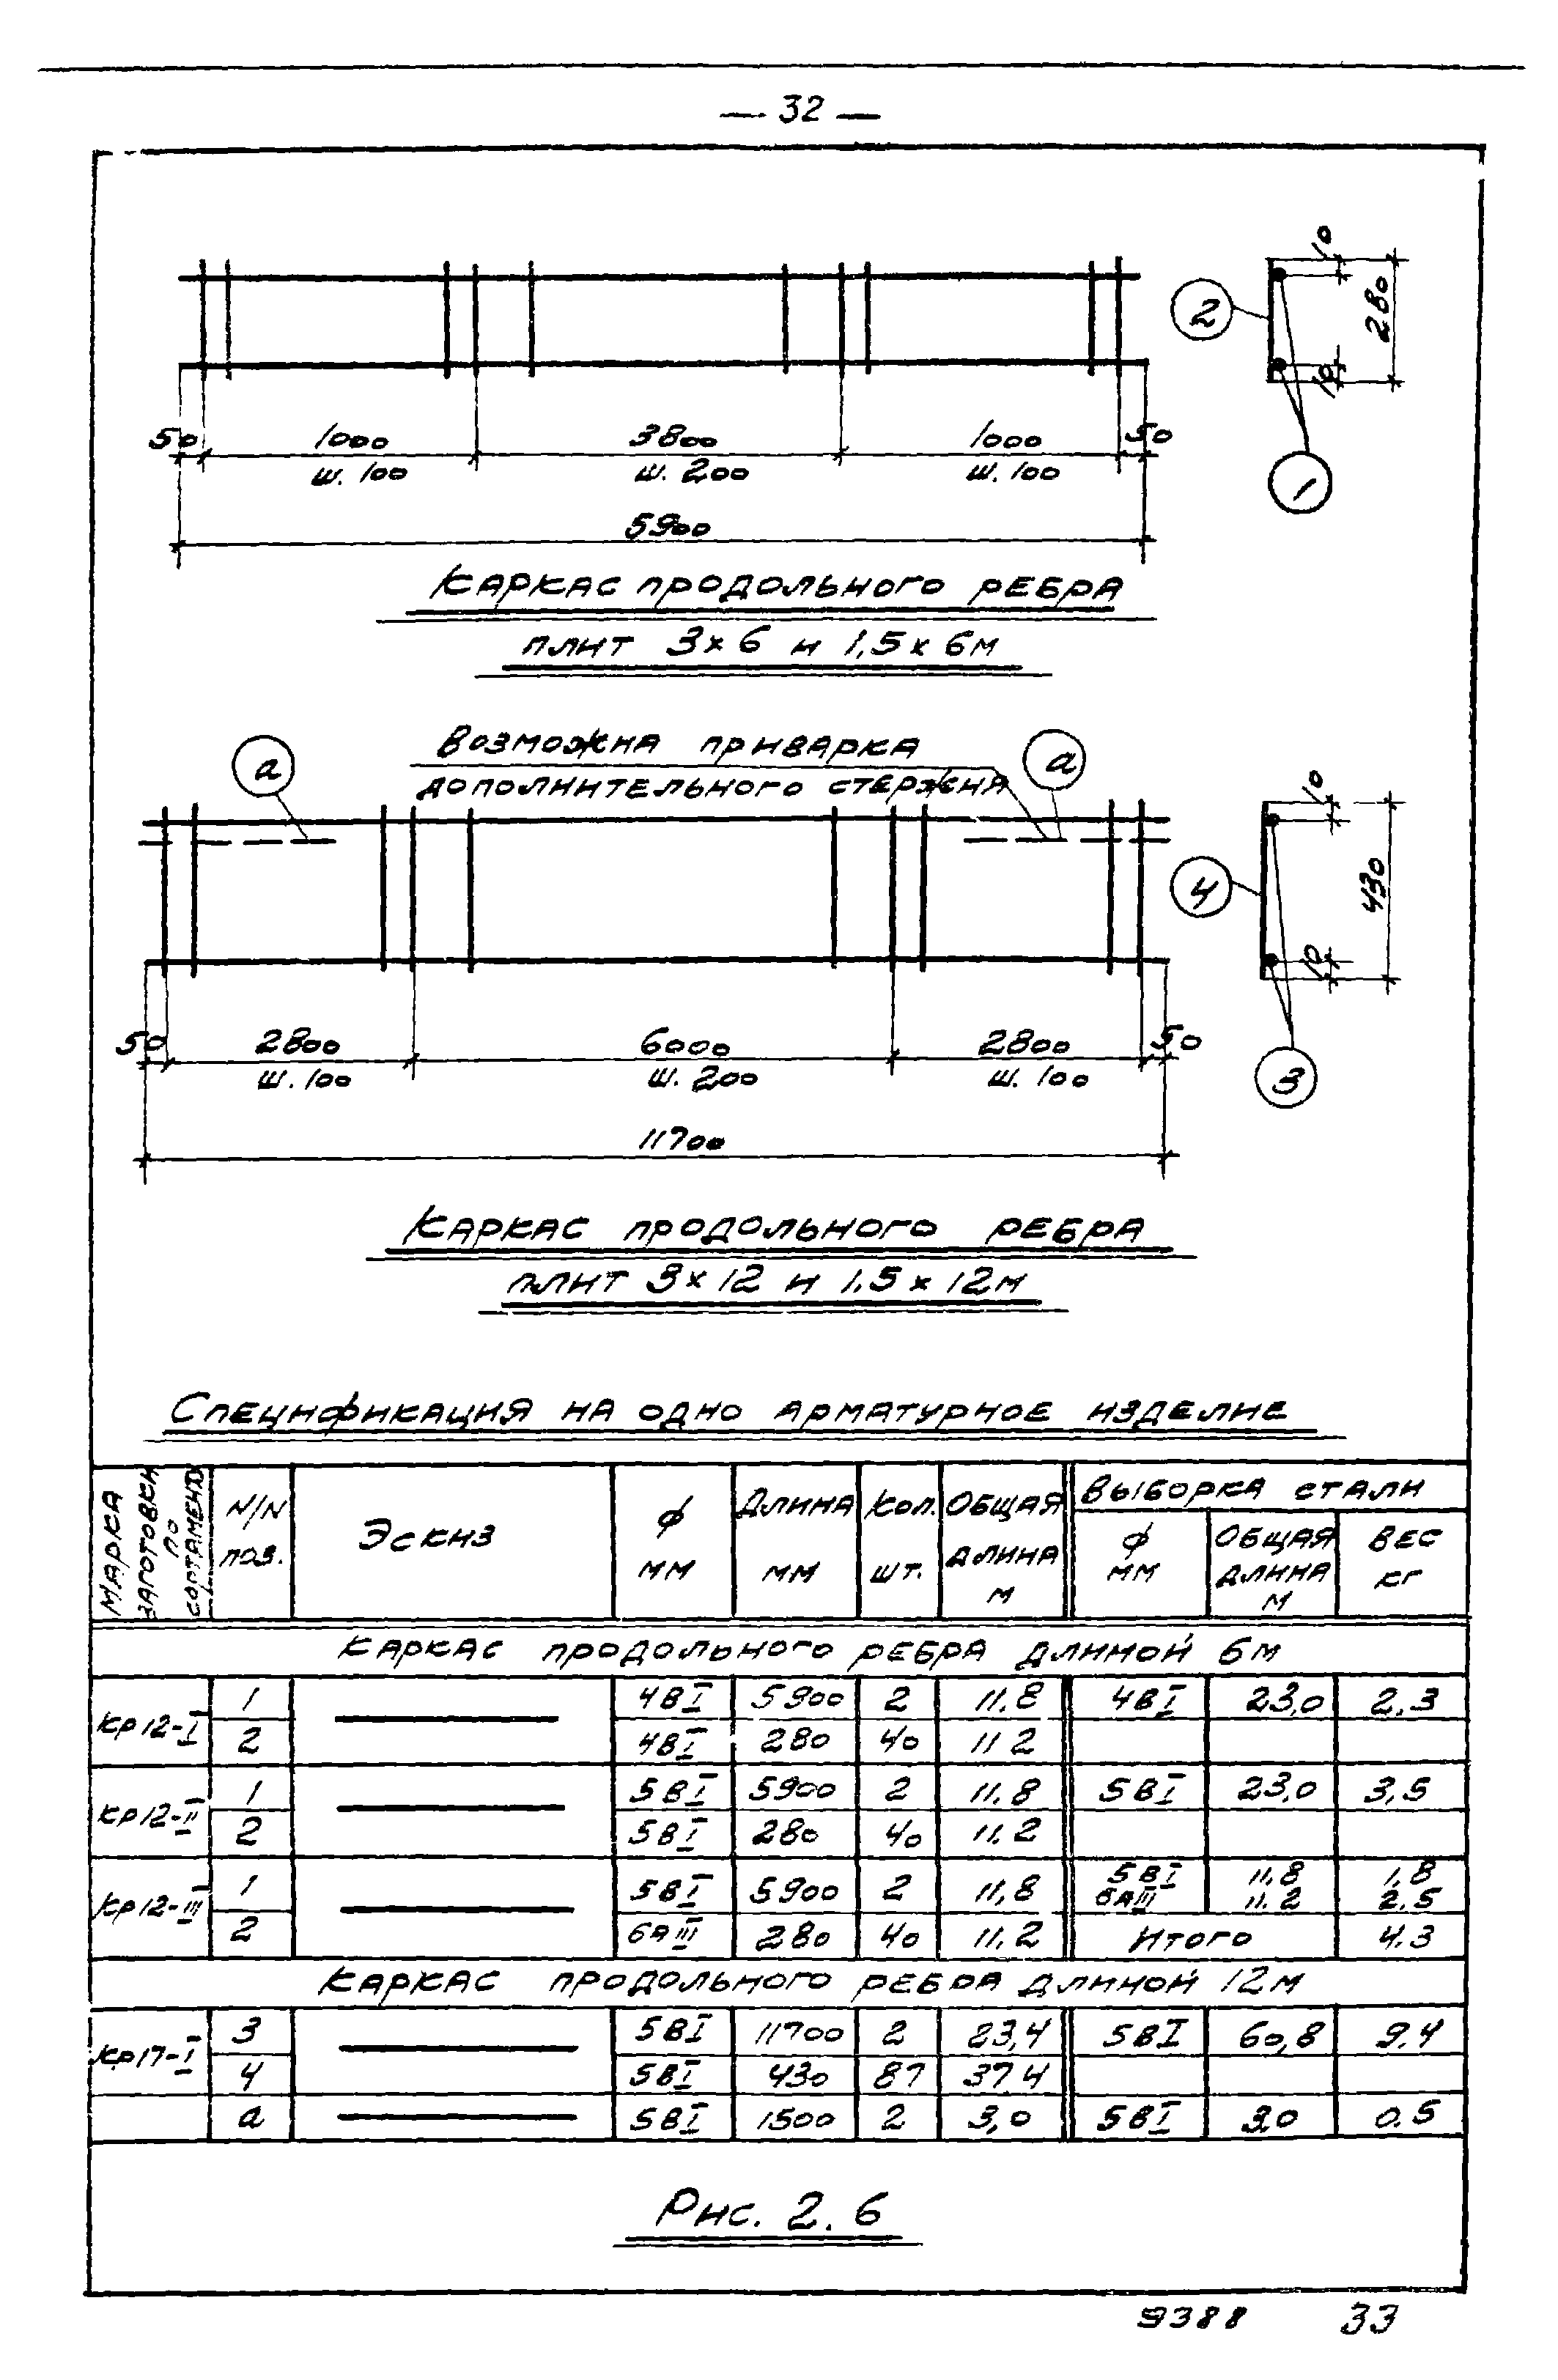 — 32 —
10
2
280
10
50 1000 3800 1000 50
ш. 100 ш. 200 ш. 100
1
5900
Каркас продольного ребра
плит 3х6 и 1,5х6м
Возможна приварка
дополнительного стержня
а а
10
4
430
10
50 2800 6000 2800 50
ш. 100 ш. 200 ш. 100
3
11700
Каркас продольного ребра
плит 3х12 и 1.5х12м
Спецификация на одно арматурное изделие
Марка заготовки по N/N поз. Эскиз ф мм Длина мм Кол. шт. Общая длина м Выборка стали
ф мм Общая длина м Вес кг
Каркас продольного ребра длиной 6м
Кр12-I 1 4ВI 5900 2 11.8 4ВI 23,0 2.3
2 4ВI 280 40 11 2
Кр12-II 1 5ВI 5900 2 11.8 5ВI 23,0 3,5
2 5ВI 280 40 11.2
Кр12-III 1 5ВI 5900 2 11,8 5ВI 11,8 1,8
6АIII 11.2 2.5
2 6АIII 280 40 11.2 Итого 4.3
Каркас продольного ребра длиной 12м
Кр17-I 3 5ВI 11700 2 23,4 5ВI 60,8 9.4
4 5ВI 430 87 37 4
а 5ВI 1500 2 3,0 5ВI 3,0 0.5
Рис. 2.6
9388 33